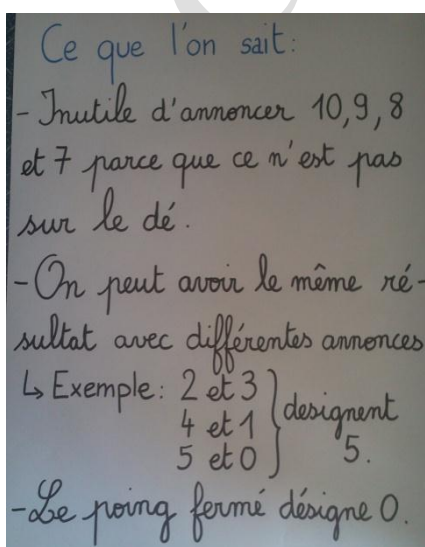 Ce que l'on sait:
- Inutile d'annoncer 10, 9, 8
et 7 parce que ce n'est pas
sur le dé.
- On peut avoir le même ré-
sultat avec différentes annonces
↳ Exemple: 2 et 3
4 et 1 } designent
5 et 0 5.
- Le poing fermé désigne 0.